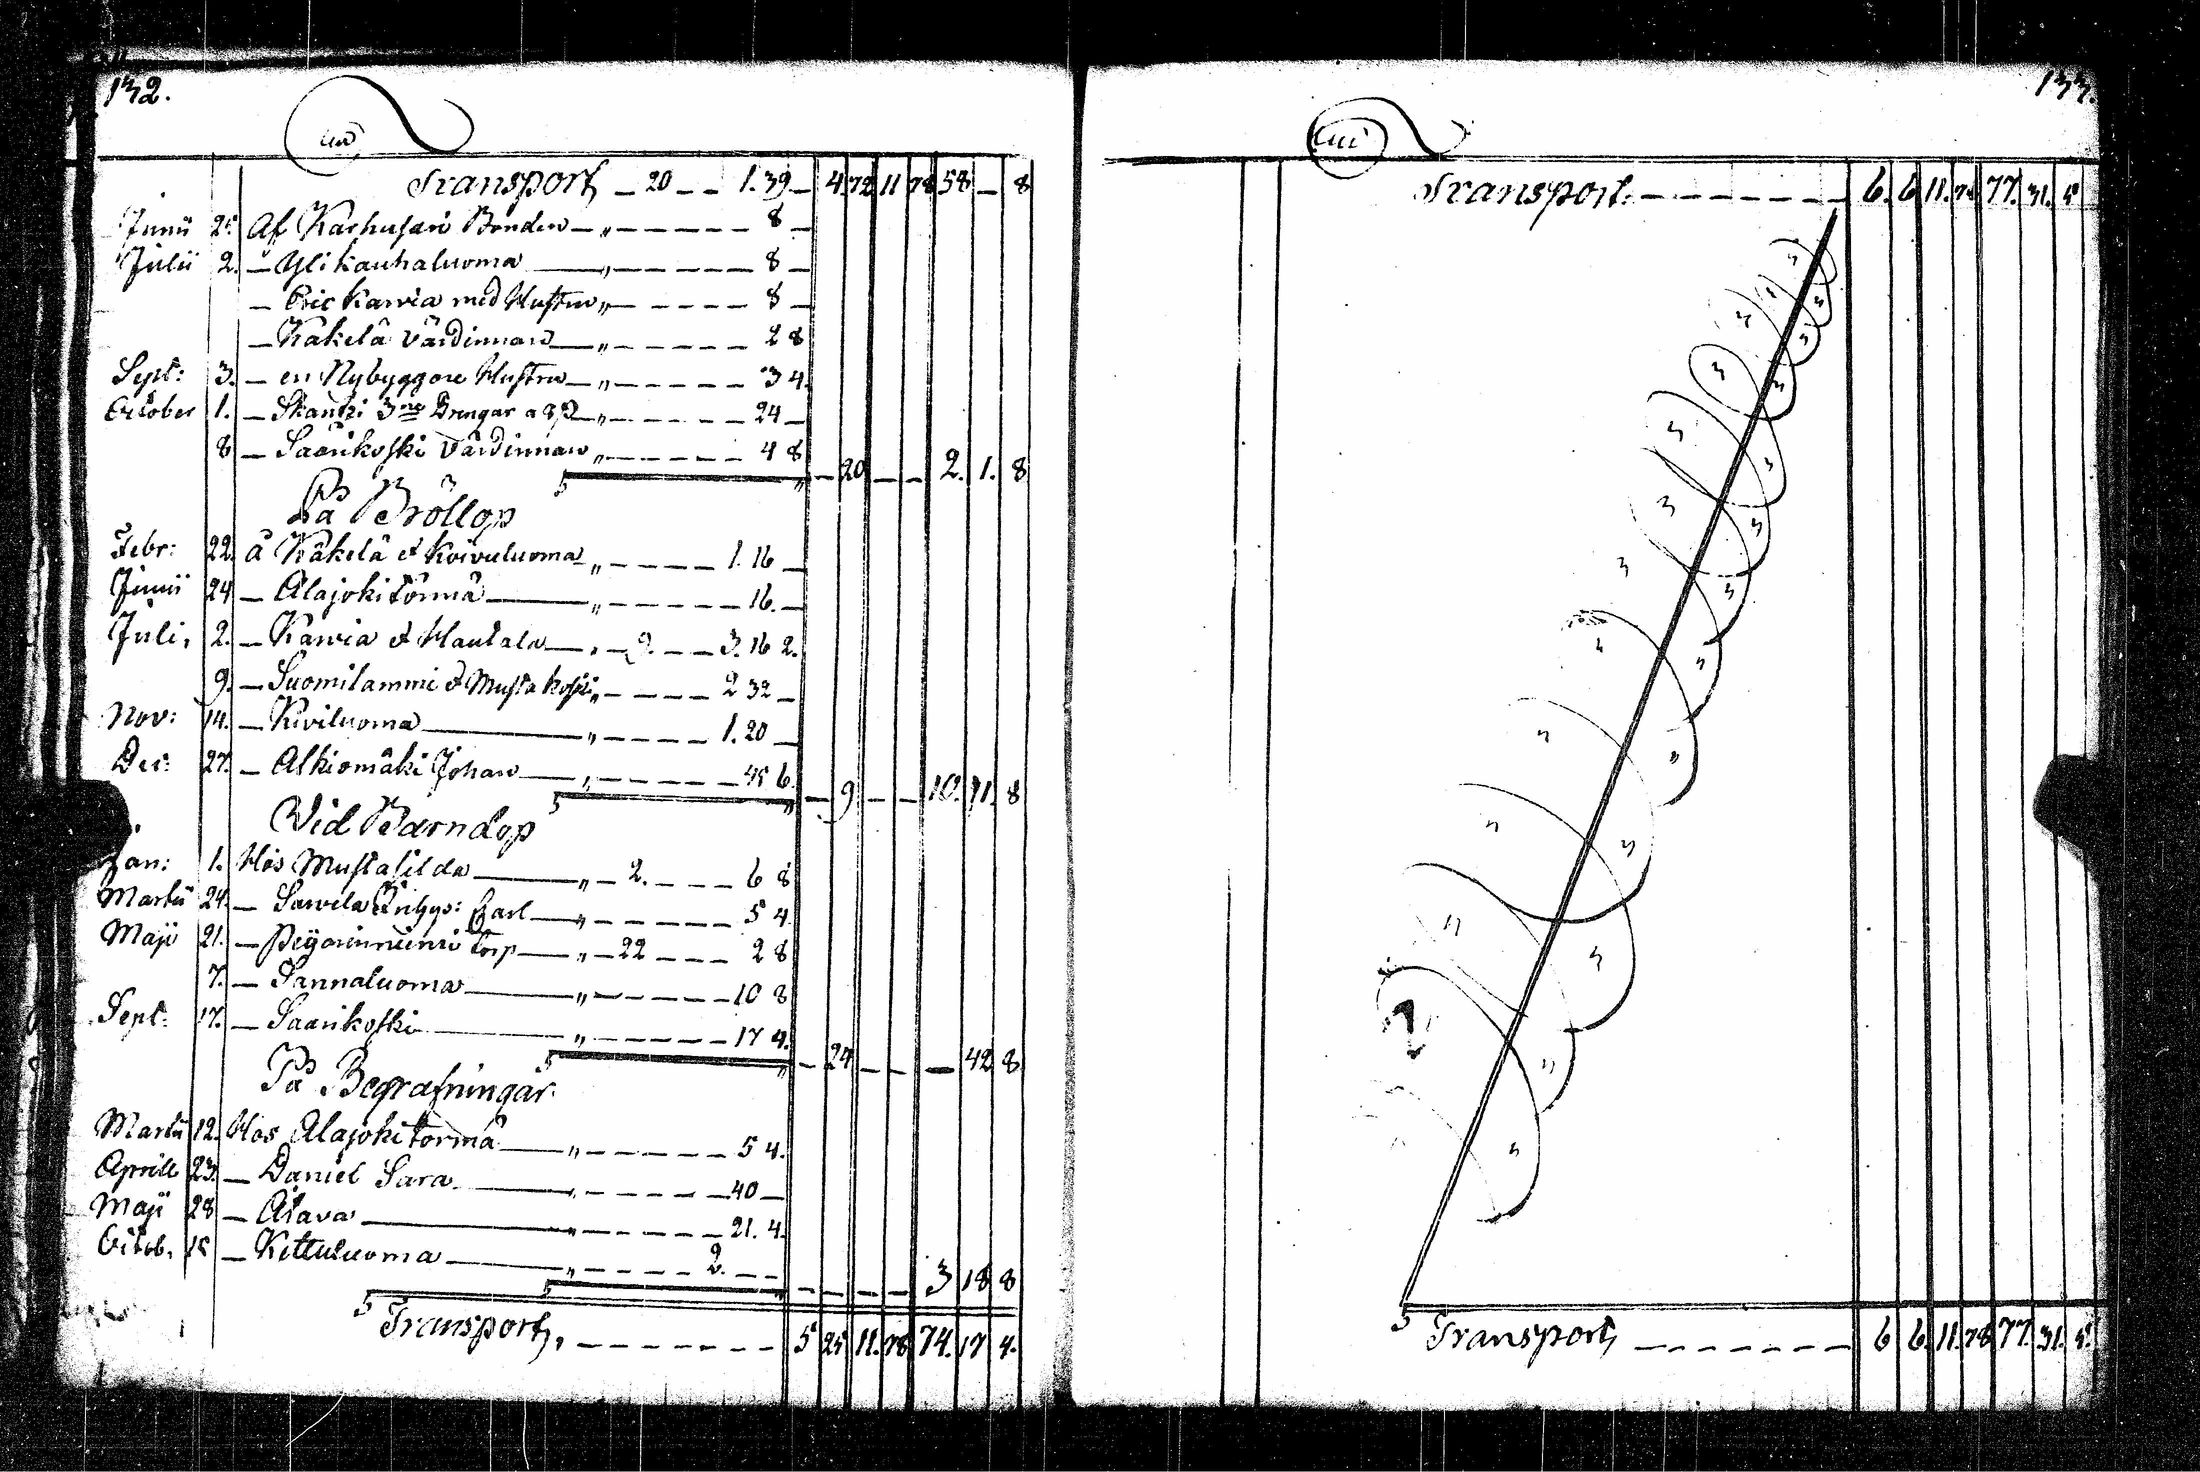 132.
Transport — 20 — — 1. 39 — 4. 72 11 78 58 — 8
Junii 25 Af Karhusari Bonden — „ — — — — 8 —
Julii 2. — Ylikauhaluoma — „ — — — — 8 —
— Eric Karvia med Hustru „ — — — — 8 —
— Käkelä Värdinnan — „ — — — — 2 8
Sept: 3. — en Nybyggare Hustru — „ — — — — 3 4.
October 1. — Skantzi 3ne Drengar a 8 — „ — — — — 24 —
8 — Saarikoski Värdinnan „ — — — — 4 8
— 20 — — 2. 1. 8
På Bröllop
Febr: 22. å Käkelä et Koivuluoma „ — — — — 1. 16 —
Junii 24 — Alajokitörmä — „ — — — — 16. —
Juli, 2. — Karvia et Hautala — „ 9. — — 3. 16 2.
9. — Suomilammi et Mustakoski „ — — — — 2 32 —
Nov: 14. — Kiviluoma — „ — — — — 1. 20 —
Dec: 27. — Alkiomäki Johan — „ — — — — 45 6.
— 9 — — 10. 41. 8
Vid Barndop
Jan: 1. Hos Mustasilda — „ — 2. — — — 6 8
Martii 24. — Sawela Carl — „ — — — — 5 4.
Maji 21. — torp — „ — 22 — — — 2 8
7. — Sannaluoma — „ — — — — 10 8
Sept: 17. — Saarikoski — „ — — — — 17 4.
— 24 — — — 42 8
På Begrafningar
Martii 12. Hos Alajokitörmä — „ — — — — 5 4.
Aprill 23. — Daniel Sara — „ — — — — 40 —
Maji 28 — Alava — „ — — — — 21. 4.
Octob. 15 — Kettuluoma — „ — — — — 2. — —
— — — — 3 18 8
Transport, — — — — — — 5 25 11. 78 74. 17 4.
133.
Transport. — — — — — — 6. 6 11. 78 77. 31. 5
Transport — — — — — — 6 6. 11. 78 77. 31. 5.